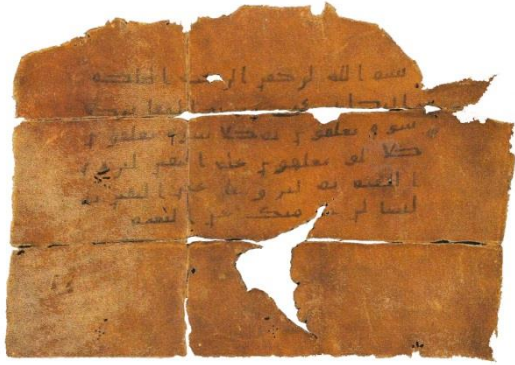 بسم الله الرحمن الرحيم الهىكم
المقابر كلا
سوف تعلمون ثم كلا سوف تعلمون
كلا لو تعلمون علم اليقين لترون
الجحيم ثم لترونها عين اليقين ثم
لتسالن يومئذ عن النعيم